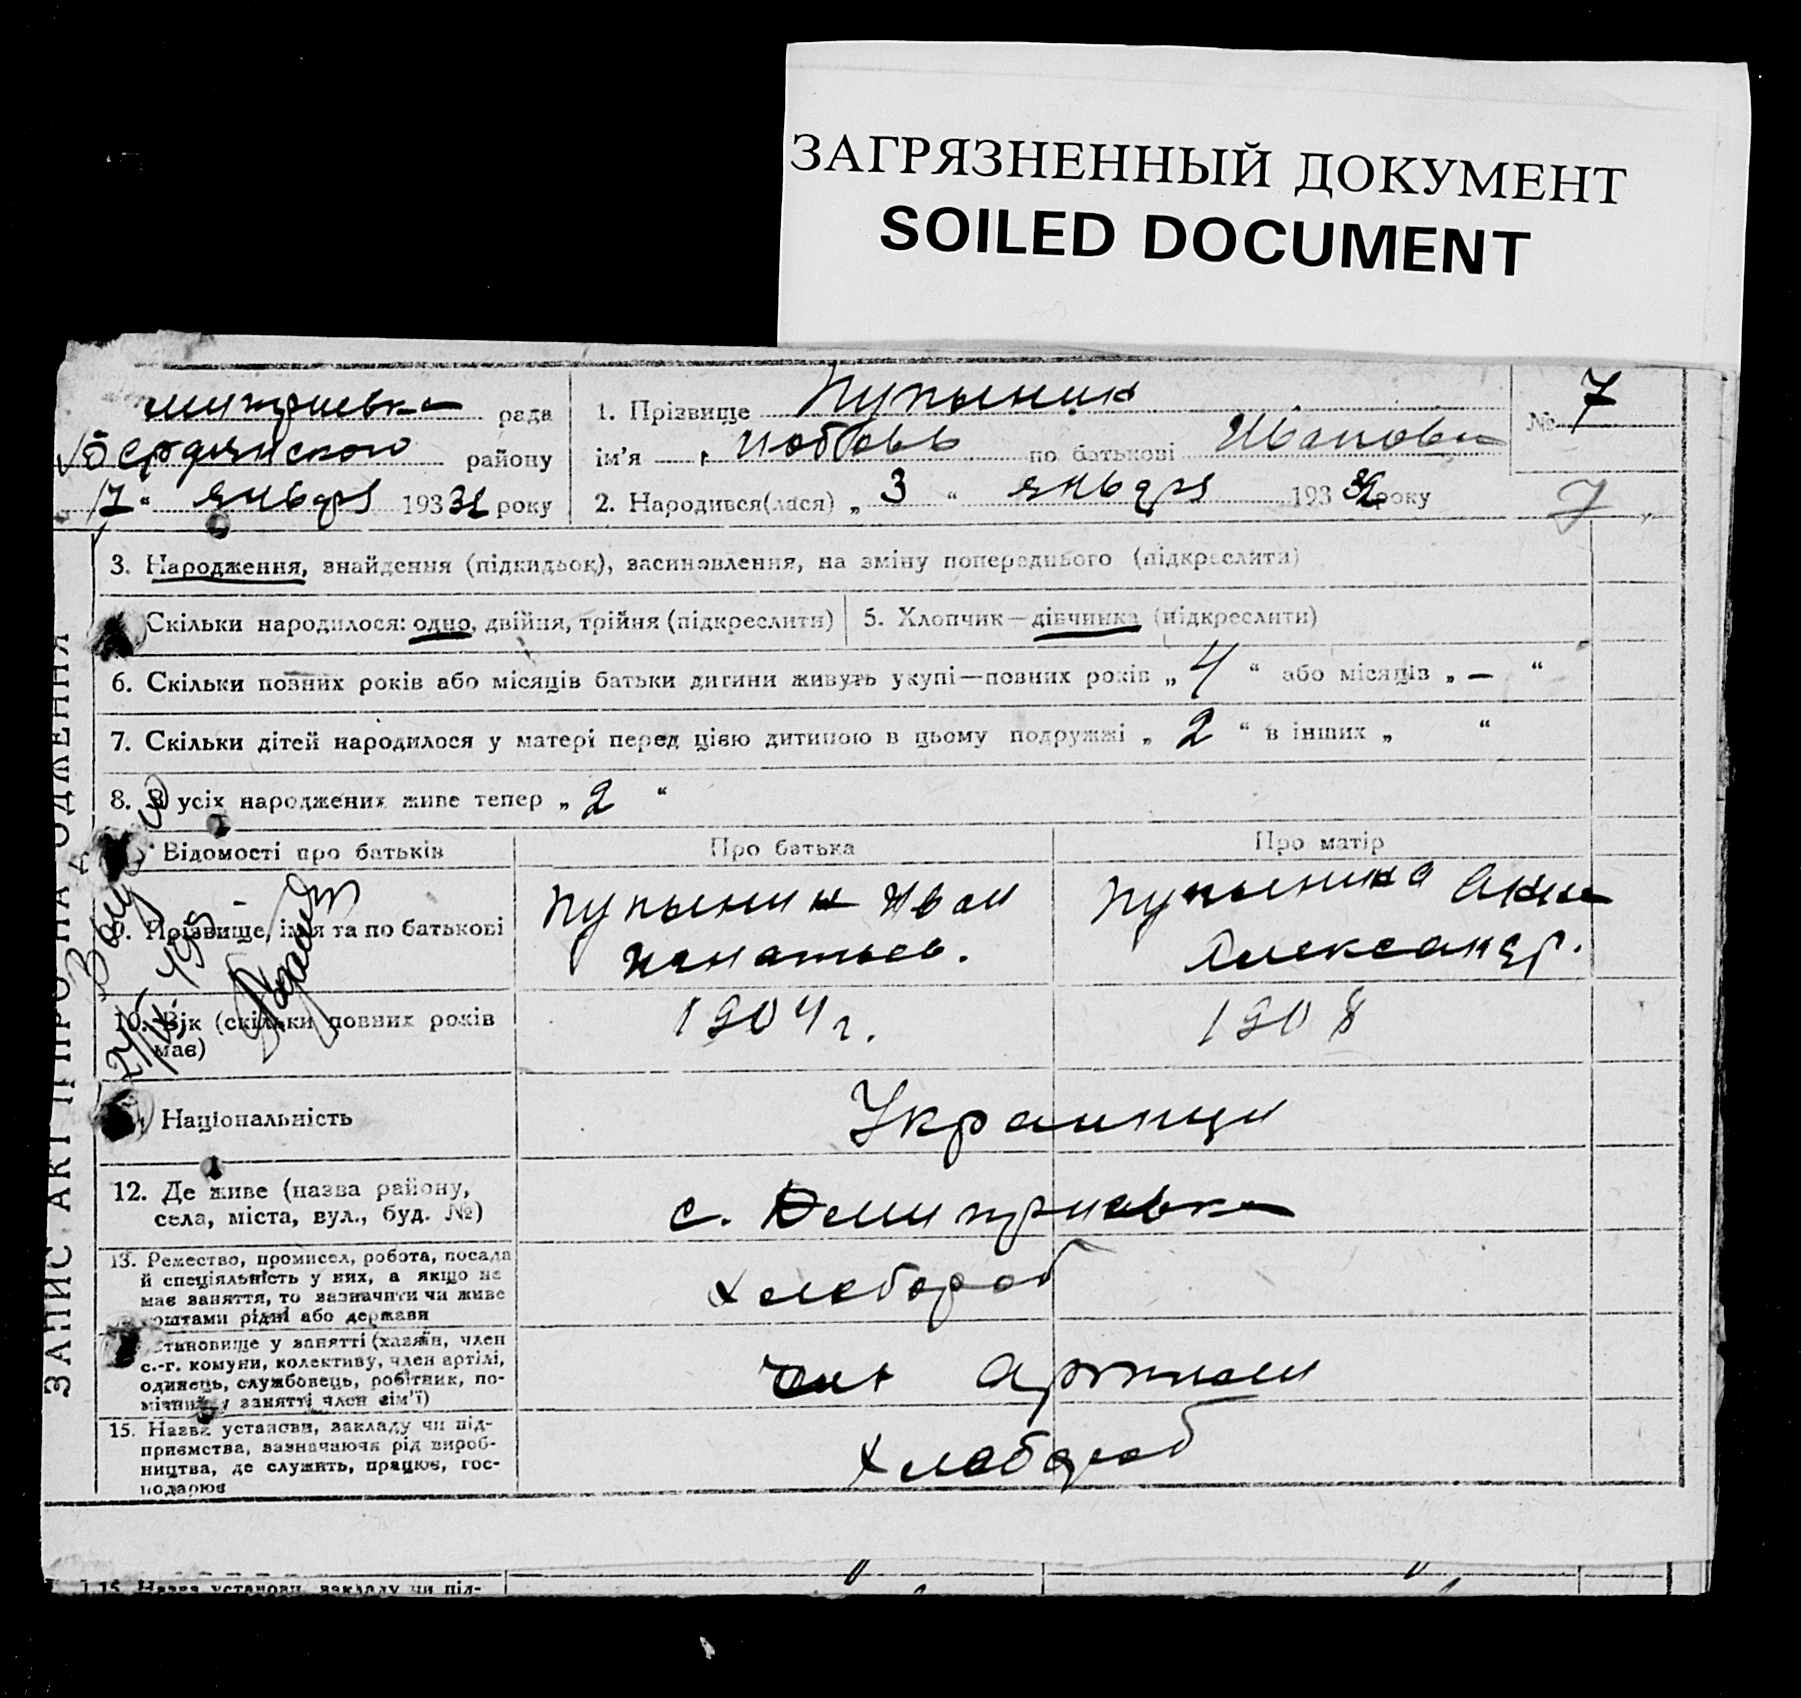 ЗАГРЯЗНЕННЫЙ ДОКУМЕНТ
SOILED DOCUMENT
митриевка рада
Бердянского району
17 " январь 193 32 року
1. Прізвище Пупынина
ім'я Любовь по батькові Иванова
2. Народився(лася) „ 3 " январь 193 32 року
№ 7
7
3. Народження, знайдення (підкидьок), засиновлення, на зміну попереднього (підкреслити)
Скільки народилося: одно, двійня, трійня (підкреслити)
5. Хлопчик—дівчинка (підкреслити)
6. Скільки повних років або місяців батьки дитини живуть укупі—повних років „ 4 " або місяців „ — "
7. Скільки дітей народилося у матері перед цією дитиною в цьому подружжі „ 2 " в інших „ "
8. З усіх народжених живе тепер „ 2 "
Відомості про батьків
Про батька
Про матір
Прізвище, ім'я та по батькові
Пупынин Иван
Игнатьев.
Пупынина Анна
Александр.
10. Вік (скільки повних років
має)
1904 г.
1908
Національність
Украинцы
12. Де живе (назва району,
села, міста, вул., буд. №)
с. Дмитриевка
13. Ремество, промисел, робота, посада
й спеціяльність у них, а якщо не
має заняття, то зазначити чи живе
коштами рідні або держави
Хлебороб
Становище у занятті (хазяїн, член
с.-г. комуни, колективу, член артілі,
одинець, службовець, робітник, по-
мічний у занятті член сім'ї)
член Артили
15. Назва установи, закладу чи під-
приємства, зазначаючи рід вироб-
ництва, де служить, працює, гос-
подарює
Хлебороб
ЗАПИС АКТ ПРО НАРОДЖЕННЯ
15. Назва установи, закладу чи під-